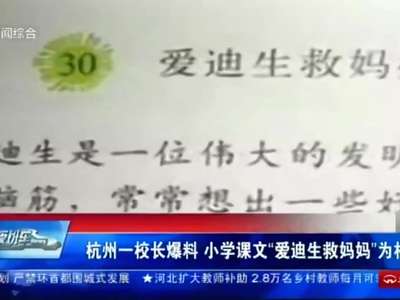 闻综合
30 爱迪生救妈
迪生是一位伟大的发明
脑筋，常常想出一些好
杭州一校长爆料 小学课文“爱迪生救妈妈”为杜
划 严禁环首都围城式发展 ★河北扩大教师补助 2.8万名乡村教师每月可